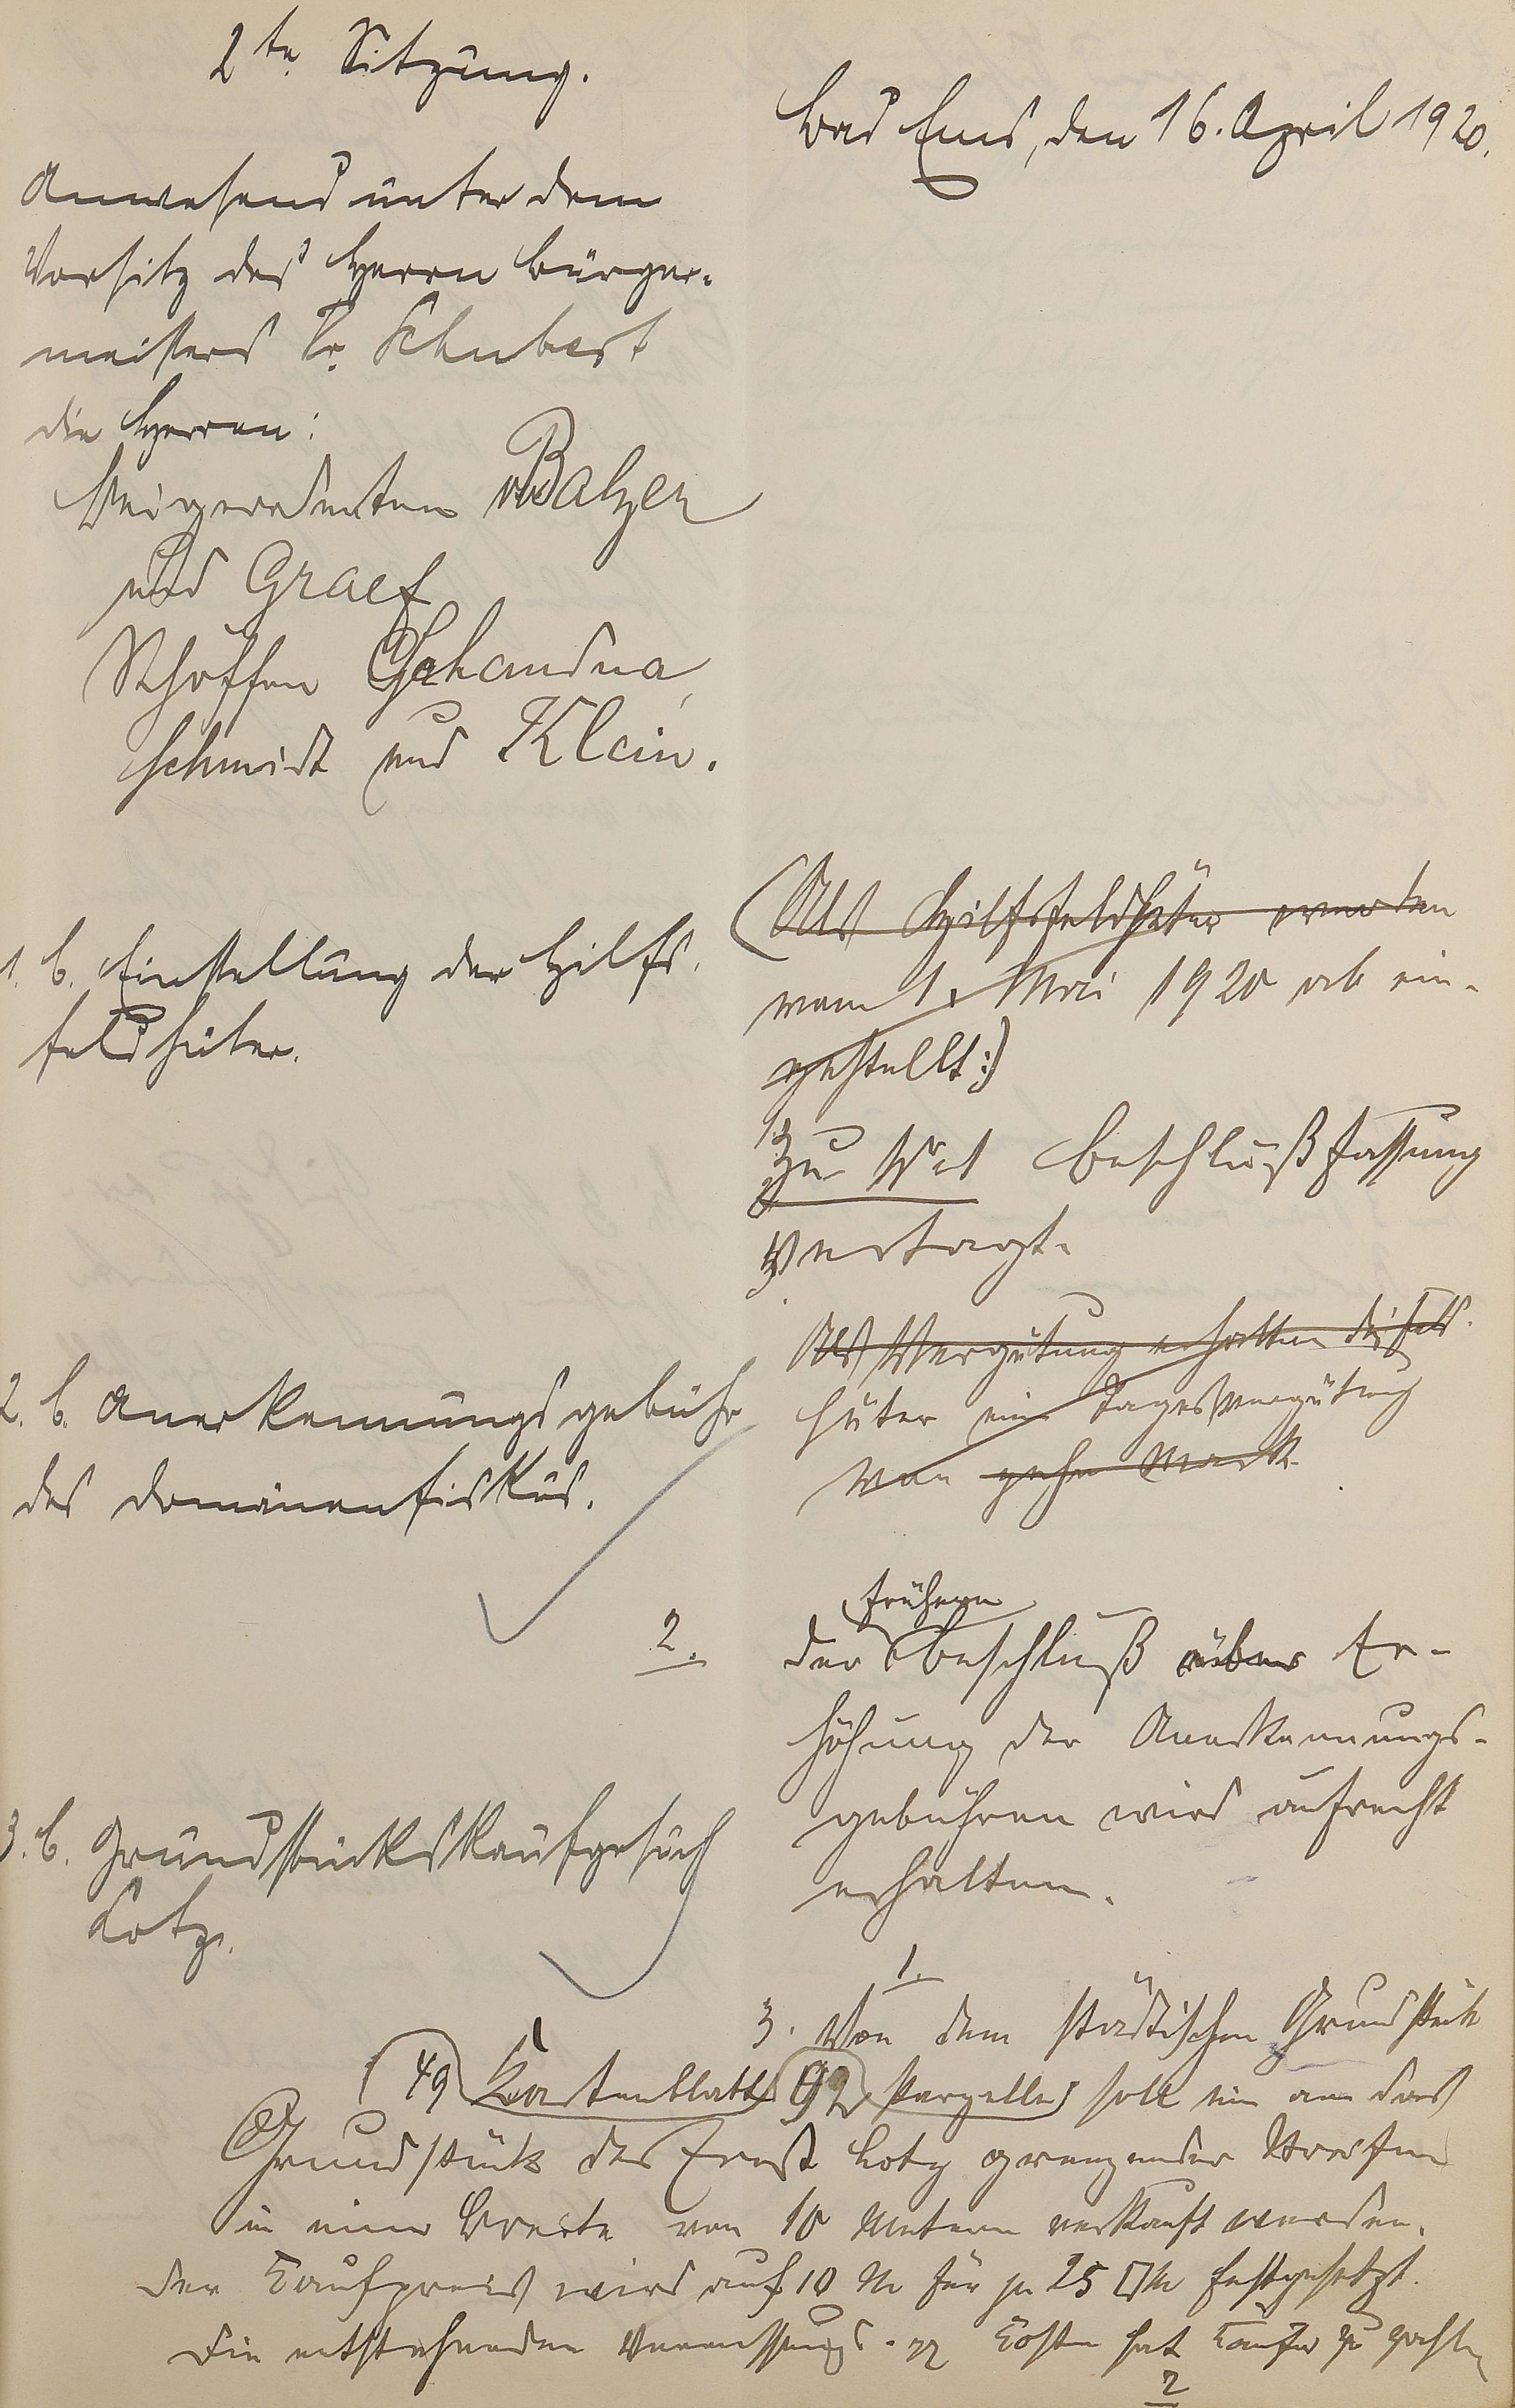 2te Sitzung.
Bad Ems, den 16. April 1920.
Anwesend unter dem
Vorsitz des Herrn Bürger-
meisters Dr. Schubert
die Herren:
Beigeordneten Balzer
und Graef
Schöffen
Schmidt und Klein.
1. b. Einstellung der Hilfs-
feldhüter.
(Als Hilfsfeldhüter werden
vom 1. Mai 1920 ab ein-
gestellt:)
Zu No 1 Beschlußfassung
vertagt.
Als Vergütung erhalten die Feld-
hüter eine Tagesvergütung
von zehn Mark.
2. b. Anerkennungsgebühr
des Domänenfiskus.
2. Der frühere Beschluß über Er-
höhung der Anerkennungs-
gebühren wird aufrecht
erhalten.
3. b. Grundstückskaufgesuch
Lotz.
1.
3. Von dem städtischen Grundstück
(49 Kartenblatt 92 Parzelle) soll ein an das
Grundstück des Ernst Lotz grenzender Streifen
in einer Breite von 10 Metern verkauft werden.
Der Kaufpreis wird auf 10 M für je 25 □M festgesetzt.
Die entstehenden Vermessungs- pp Kosten hat Käufer zu zahlen
2